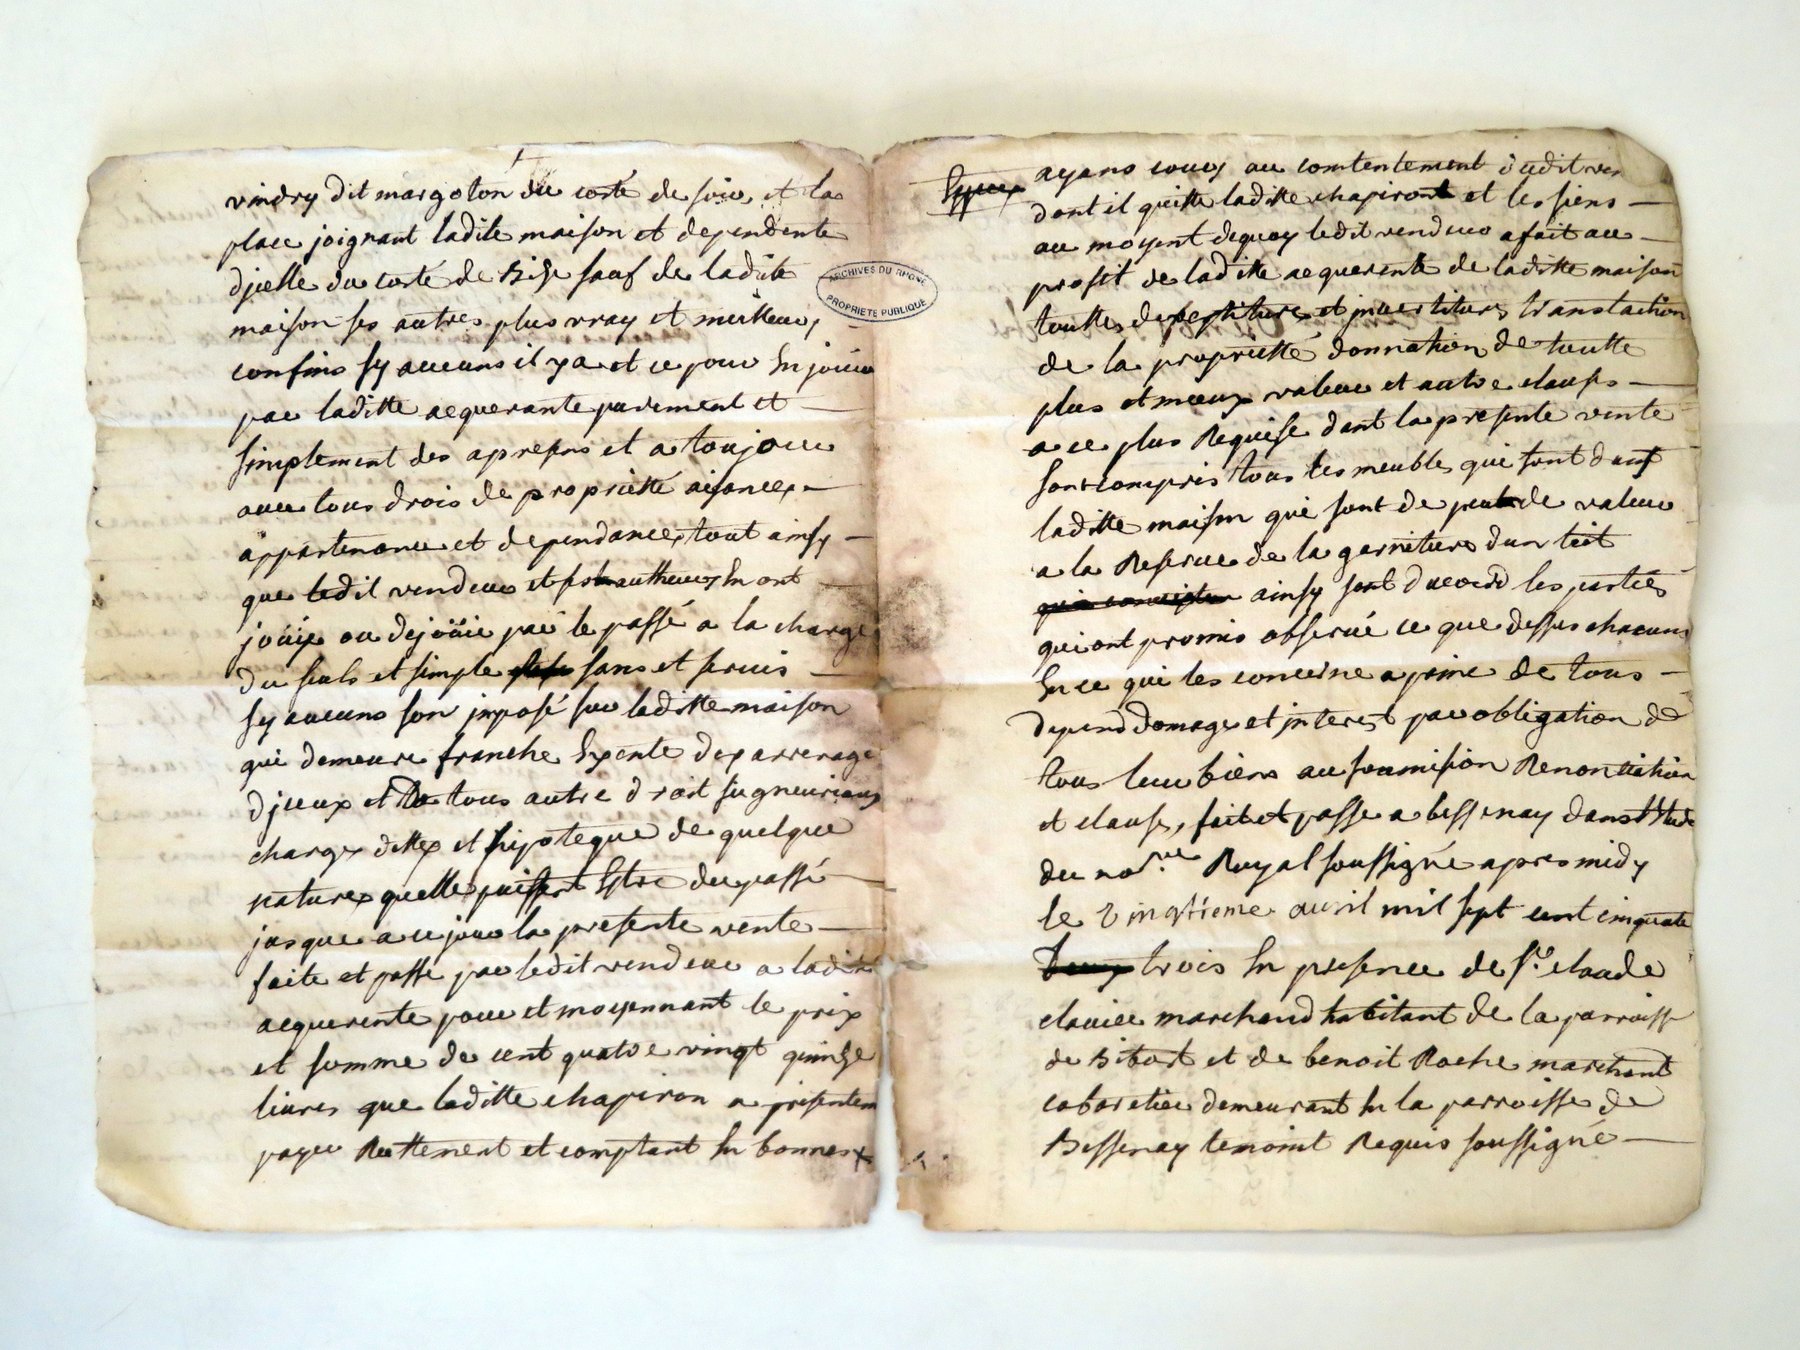 vindry dit margoton du costé de soir, et la
place joignant ladite maison et dependente
d'jcelle du costé de Bise sauf de ladite
maison ses autres plus vray et meilleurs
confins sy aucuns il y a et ce pour En jouir
par laditte acquerante purement et
simplement des apresens et a toujour
avec tous drois de proprietté aisances
appartenance et dependances, tout ainsy
que ledit vendeur et ses autheurs En ont
joüir ou dejoüir par le passé a la charge
du seuls et simple sans et servis
sy aucuns son jmposé sur laditte maison
qui demeure franche Exente dex arrerage
djceux et de tous autre droit signeuriaux
charges dettes et hipoteque de quelque
natures quelle puissent Estre du passé
jusque a ce jour la presente vente
faite et passe par ledit vendeur a ladite
acquerente pour et moyennant le prix
et somme de cent quatre vingt quinse
livres que laditte chapiron a presentem
payer Reellement et comptant En bonnes
ARCHIVES DU RHONE
PROPRIETE PUBLIQUE
Especes ayans cours au contentement dudit ven
dont il quitte laditte chapiront et les siens
au moyent dequoy ledit vendeur a fait au
profit de laditte acquerente de laditte maison
touttes devestitures et jnvestitures translation
de la proprietté donnation de toutte
plus et mieux valeur et autre clauses
a ce plus Requise dant la presente vente
son compris tous les meubles qui sont dans
laditte maison qui sont de peut de valeur
a la Reserve de la garniture dun lict
ainsy sont daccord les parties
qui ont promis observé ce que dessus chacuns
En ce qui les concerne a peine de tous
depend domages et jnterest par obligation de
tous leur biens au soumision Renontiation
et clauses, fait et passe a bessenay dans l'Etude
du no.re Royal soussigné apres midy
le vingtieme avril mil sept cent cinquante
trois En presence de Sr claude
clavier marchand habitant de la parroisse
de Bibost et de benoit Roche marchant
cabaretier demeurant En la parroisse de
Bessenay temoint Requis soussigné